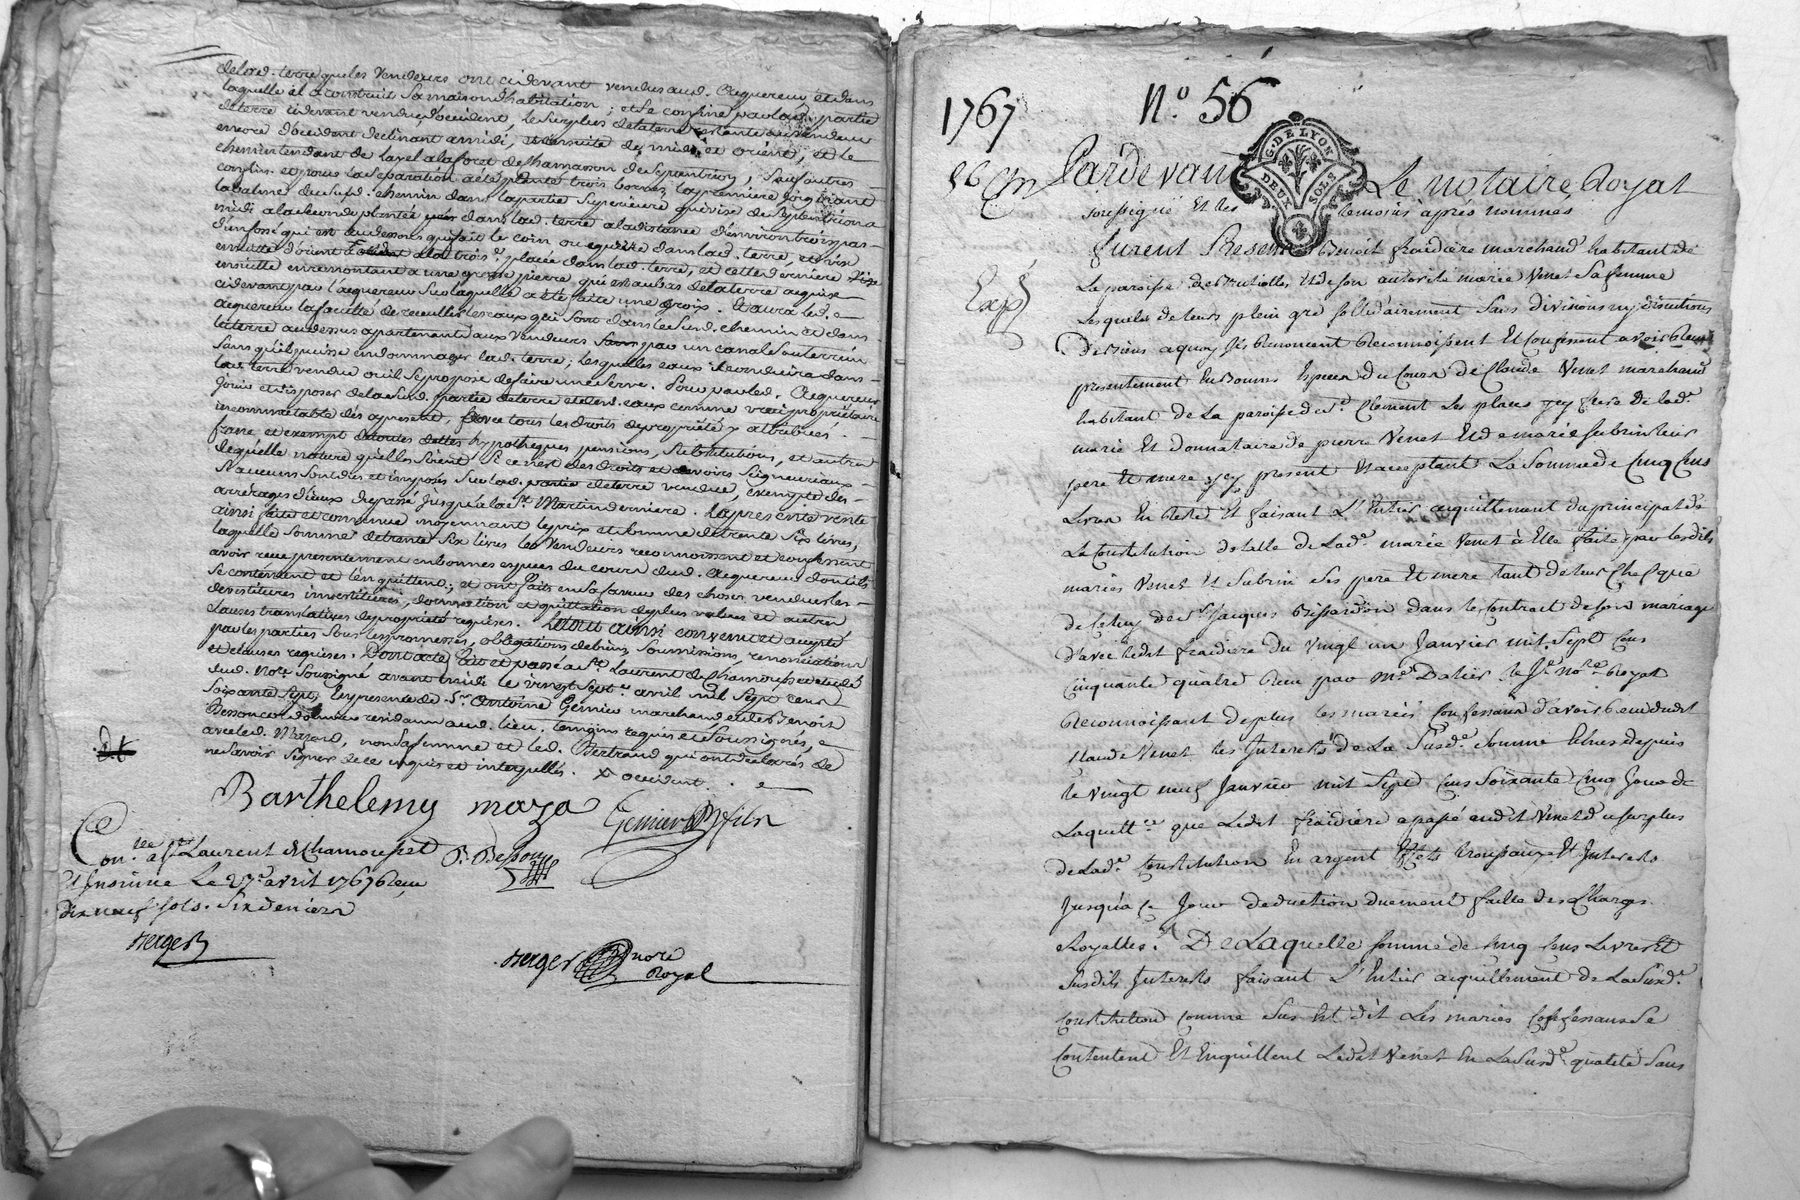 delad. terre que les Vendeurs ont cidevant vendus aud. Acquereur et dans
laquelle il a construit sa maison d'habitation ; et se confine par lad. partie
de terre cidevant vendu d'occident, le surplus de la terre restante aux vendeurs
encore d'occident declinant a midi, et ensuite de midi et orient, et le
chemin tendant de Lavel a la foret de Chamousset de Septentrion, sauf autres
confins. et pour la separation a été planté trois bornes, la premiere joignant
la balme du susd. chemin dans la partie Superieure qui vise de Septentrion a
midi a la seconde plantée dans lad. terre a la distance d'environ trois pas
d'un fossé qui est au dessous qui fait le coin ou equerre dans lad. terre, et vise
ensuite d'orient a la trois.e placée dans lad. terre, et cette derniere vise
ensuite en remontant a une grosse pierre qui est au bas de la terre acquise
cidevant par l'acquereur sur laquelle a été faite une croix. Et aura led.
acquereur la faculté de recueillir les eaux qui sont dans le susd. chemin et dans
la terre au dessus appartenant aux Vendeurs par un canal Souterrain
sans qu'il puisse endommager lad. terre ; lesquelles eaux il conduira dans
la terre vendue ou il se propose de faire une serve. Pour par led. Acquereur
jouir et disposer de la susd. partie de terre et desd. eaux comme vrai proprietaire
incommutable dès apresent, avec tous les droits de propriété y attribuées.
franc et exempt de toutes dettes hypotheques pensions, substitutions, et autres
de quelle nature qu'elles soient si ce n'est des droits et devoirs Seigneuriaux
si aucuns sont dûs et imposés sur lad. partie de terre vendue, exempte des
arrérages d'iceux du passé jusqu'a la St. Martin derniere. La presente vente
ainsi faite et convenue moyennant le prix et somme de trente six livres,
laquelle somme de trente six livres les Vendeurs reconnoissent et confessent
avoir reçue presentement en bonnes especes du cours dud. Acquereur dont ils
se contentent et l'en quittent ; et ont faits en sa faveur des choses vendues les
devestitures investitures, donnation et quittation des plus values et autres
clauses translatives de propriété requises. Letout ainsi convenu et accepté
par les parties sous les promesses, obligations de biens, soumissions, renonciations
et clauses requises. Dont acte fait et passé a St. Laurent de Chamousset etude
dud. Nore. Soussigné avant midi le vingt sept avril mil sept cent
soixante sept, en presence de Sr. Antoine Gemier marchand et de Sr Benoit
Besson cordonnier residants aud. lieu, temoins requis et Soussignés,
avec led. Mazard, non sa femme et led. Bertrand qui ont declarés de
ne savoir signer de ce enquis et interpellés. X occident.
Barthelemy maza
Gemier fils
B. Besson
Con.lee a St Laurent de Chamousset
Et Insinué Le 27.e avril 1767 Reçu
dix neuf sols. Six deniers
Berger
Berger nore
Royal
1767
N.o 56
G. DE LYON
DEUX SOLS
26
Pardevant Le notaire Royal
soussigné Et les temoins après nommés
furent Presens Benoit fraidiere marchand habitant de
La paroisse de Brutiolles, Et de son autorité marie Venet Sa femme
Lesquels de leurs plein gré solidairement sans divisions ny discutions
De biens a quoy Ils Renoncent Reconnoissent Et Confessent avoir Reçu
presentement En Bonnes Especes Du Cours De Claude Venet marchand
habitant de La paroisse de St. Clement Les places yey frere De lad.e
marie Et Donnataire de pierre Venet Et de marie Subrin leurs
pere Et mere yey present Et acceptant La Somme de Cinq Cens
Livres En Reste Et faisant L'Entier acquittement du principal de
La Constitution de talle De Lad.e marie Venet à Elle faite par lesdits
mariés Venet Et Subrin Ses pere Et mere tant de leur Chef que
de Celuy de Sr Jacques Bissardon dans le Contract de son mariage
D'avec ledit fraidiere du vingt un Janvier mil Sept Cens
Cinquante quatre Reçu par me. Dalier Le Je. no.re Royal
Reconnoissant de plus les mariés Confessans d'avoir Reçu dudit
Claude Venet les Interests De La Susd.e Somme Echus depuis
le vingt neuf Janvier mil Sept Cens Soixante Cinq Jour de
Laquitt.ce que Ledit fraidiere a passé audit Venet du surplus
de Lad.e Constitution En argent Effets trousseaux Et Interests
Jusqu'à Ce Jour deduction duement faitte des Charges
Royalles. De Laquelle Somme de Cinq Cens Livres Et
Susdits Interests faisant L'Entier acquittement de La Susd.e
Constitution Comme Sus Est dit Les mariés Confessans Se
Contentent Et Enquittent Ledit Venet En La Susd.e qualité Sans